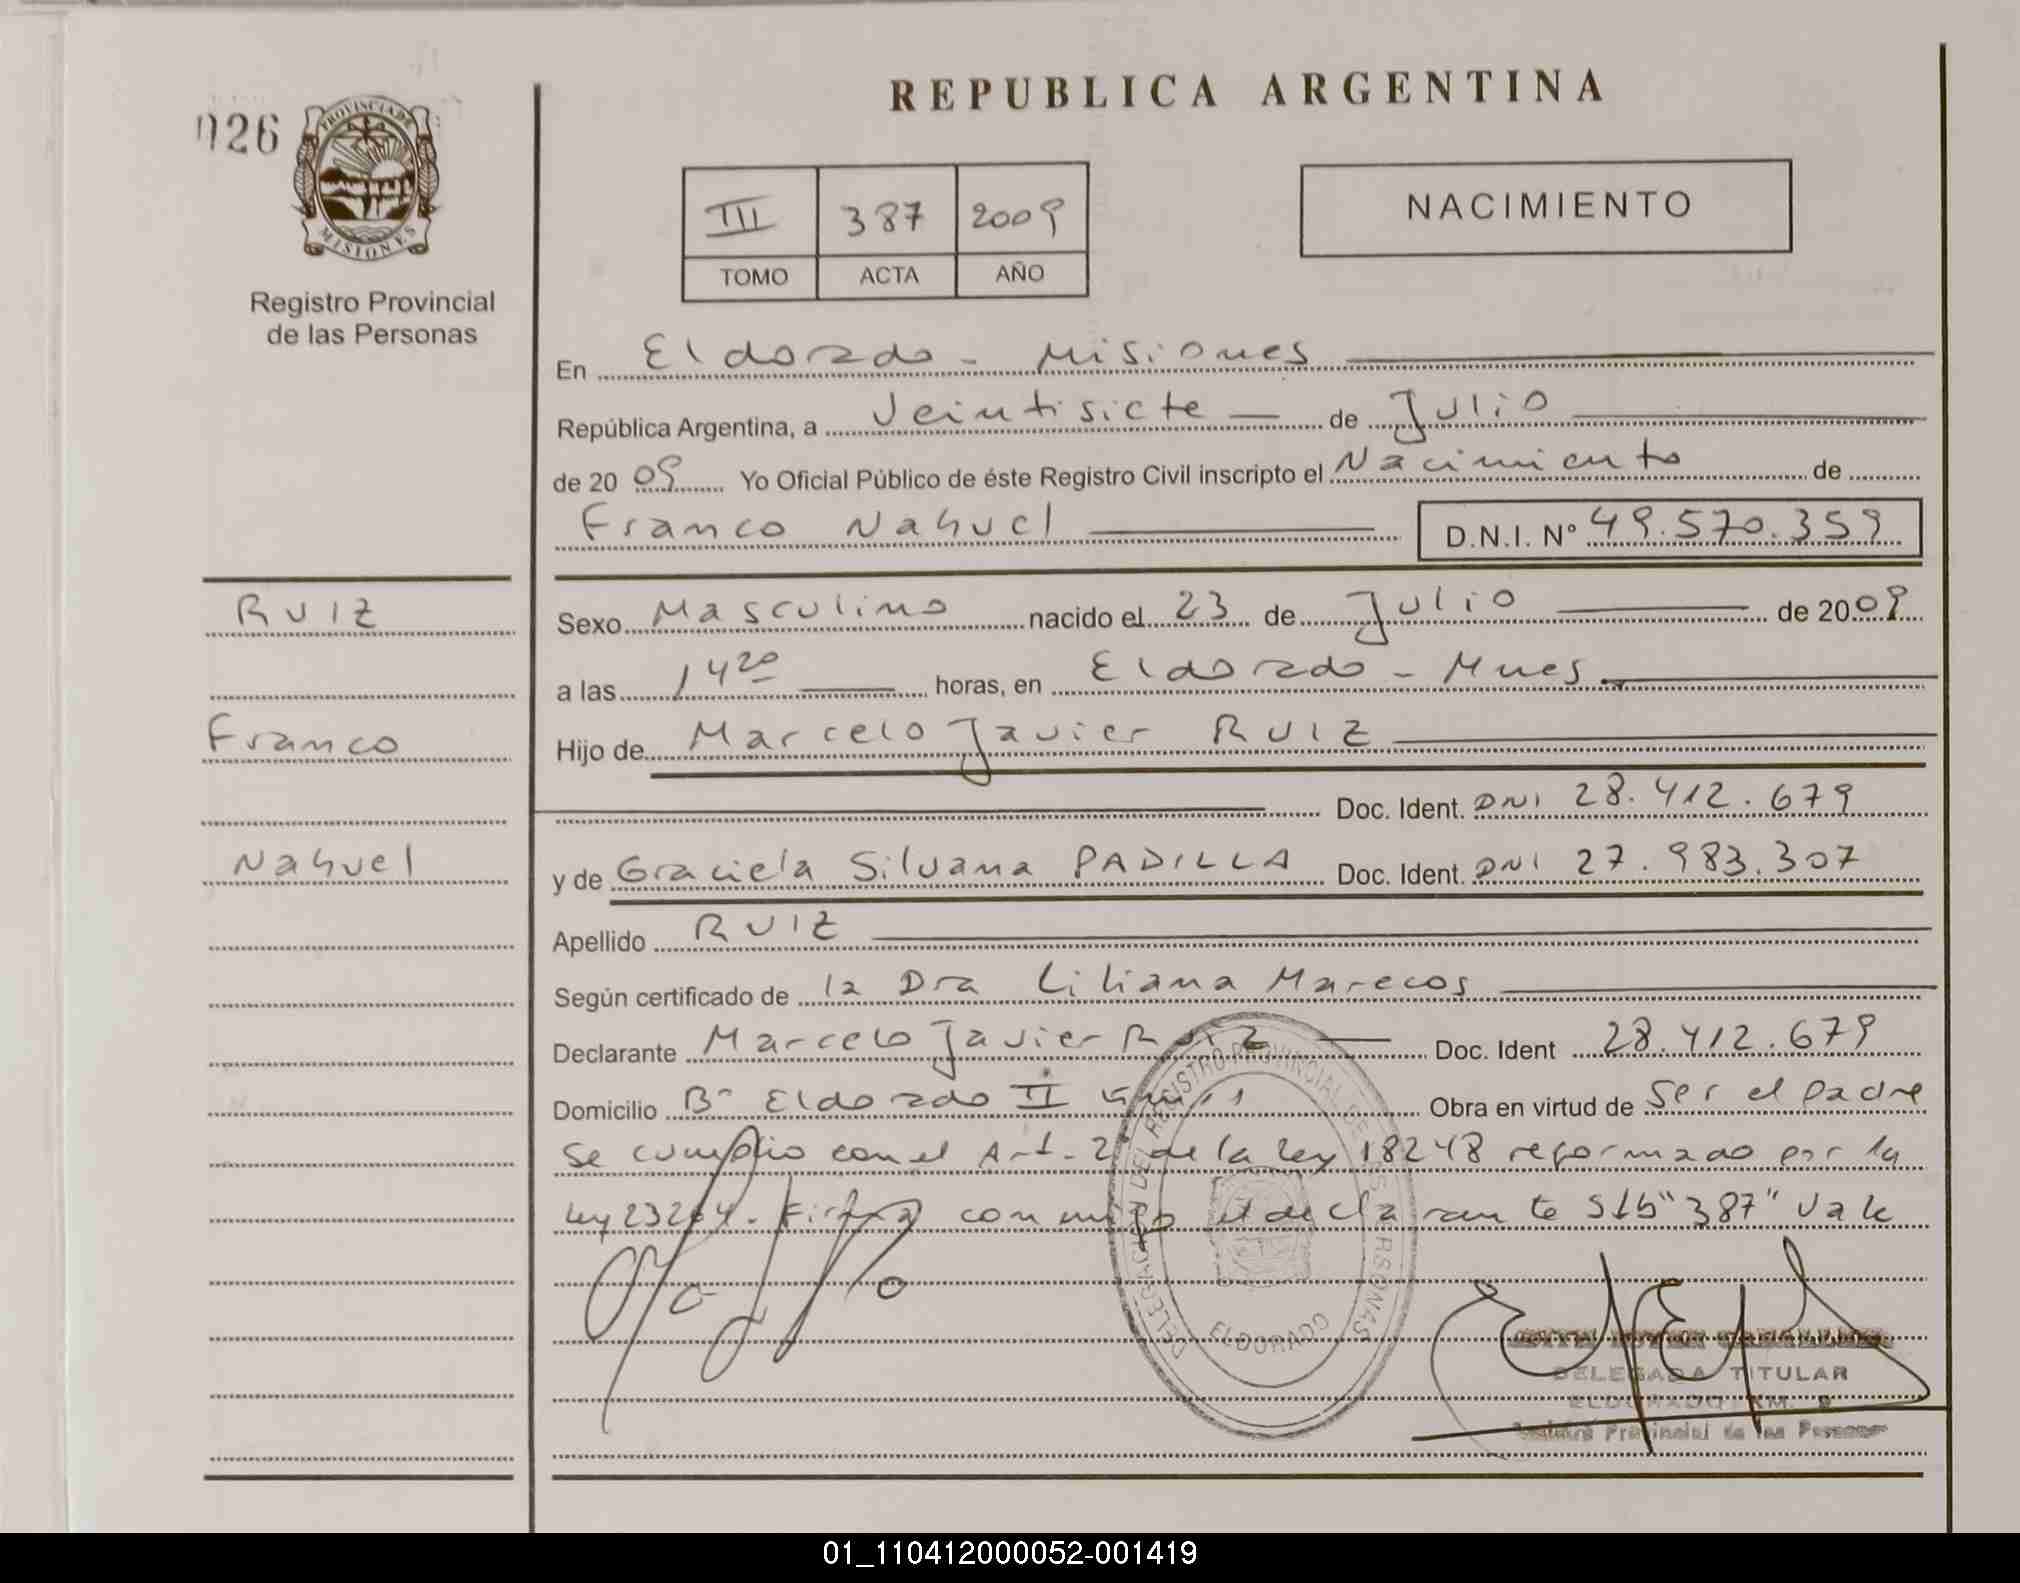 REPUBLICA ARGENTINA
026
PROVINCIA DE
MISIONES
Registro Provincial
de las Personas
III 387 2009
TOMO ACTA AÑO
NACIMIENTO
En Eldorado - Misiones
República Argentina, a Veintisiete de Julio
de 2009 Yo Oficial Público de éste Registro Civil inscripto el Nacimiento de
Franco Nahuel D.N.I. Nº 49.570.359
RUIZ
Franco
Nahuel
Sexo Masculino nacido el 23 de Julio de 2009
a las 14 20 horas, en Eldorado - Mnes
Hijo de Marcelo Javier RUIZ
Doc. Ident. DNI 28.412.679
y de Graciela Silvana PADILLA Doc. Ident. DNI 27.983.307
Apellido RUIZ
Según certificado de la Dra Liliana Marecos
Declarante Marcelo Javier Ruiz Doc. Ident 28.412.679
Domicilio Bº Eldorado II Obra en virtud de ser el padre
se cumplio con el Art. 2 de la ley 18248 reformado por la
ley 23264. Firma conmigo el declarante S/b "387" Vale
DELEGACION DEL REGISTRO PROVINCIAL DE LAS PERSONAS
ELDORADO
DELEGADA TITULAR
ELDORADO KM. 9
Registro Provincial de las Personas
01_110412000052-001419